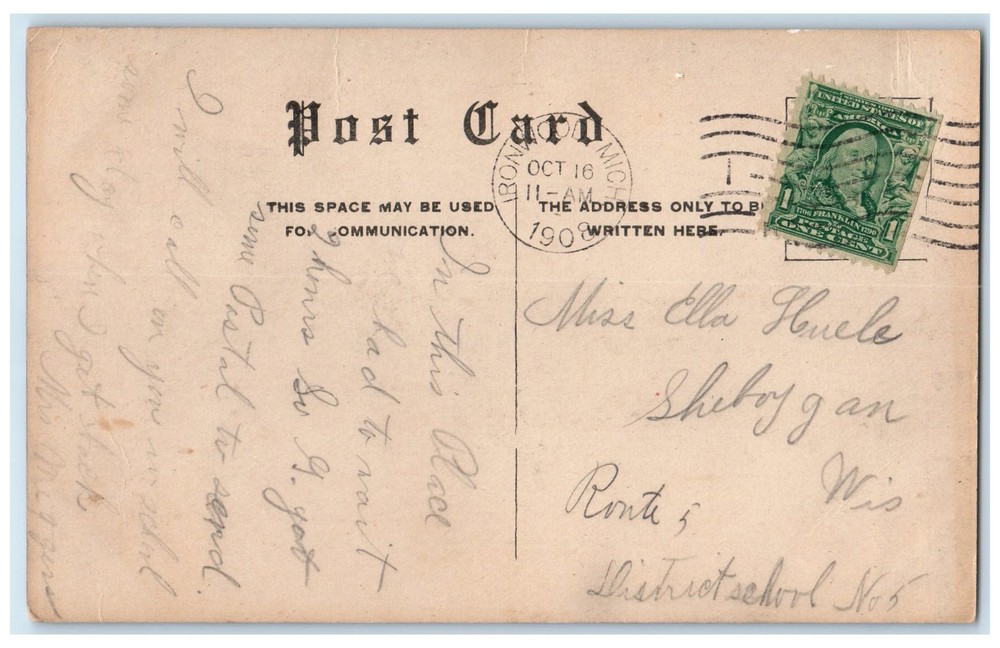 Post Card
THIS SPACE MAY BE USED
FOR COMMUNICATION.
THE ADDRESS ONLY TO B
WRITTEN HERE.
IRON MICH
OCT 16
11-AM
1908
UNITED STATES OF
AMERICA
1706 FRANKLIN 1790
POSTAGE
1 1
ONE CENT
In this Place
we had to wait
2 hours So I got
some Postal to send.
I will call on you in
some day when I get
Miss Ella
Sheboygan
Wis
Route 5
District school No 5